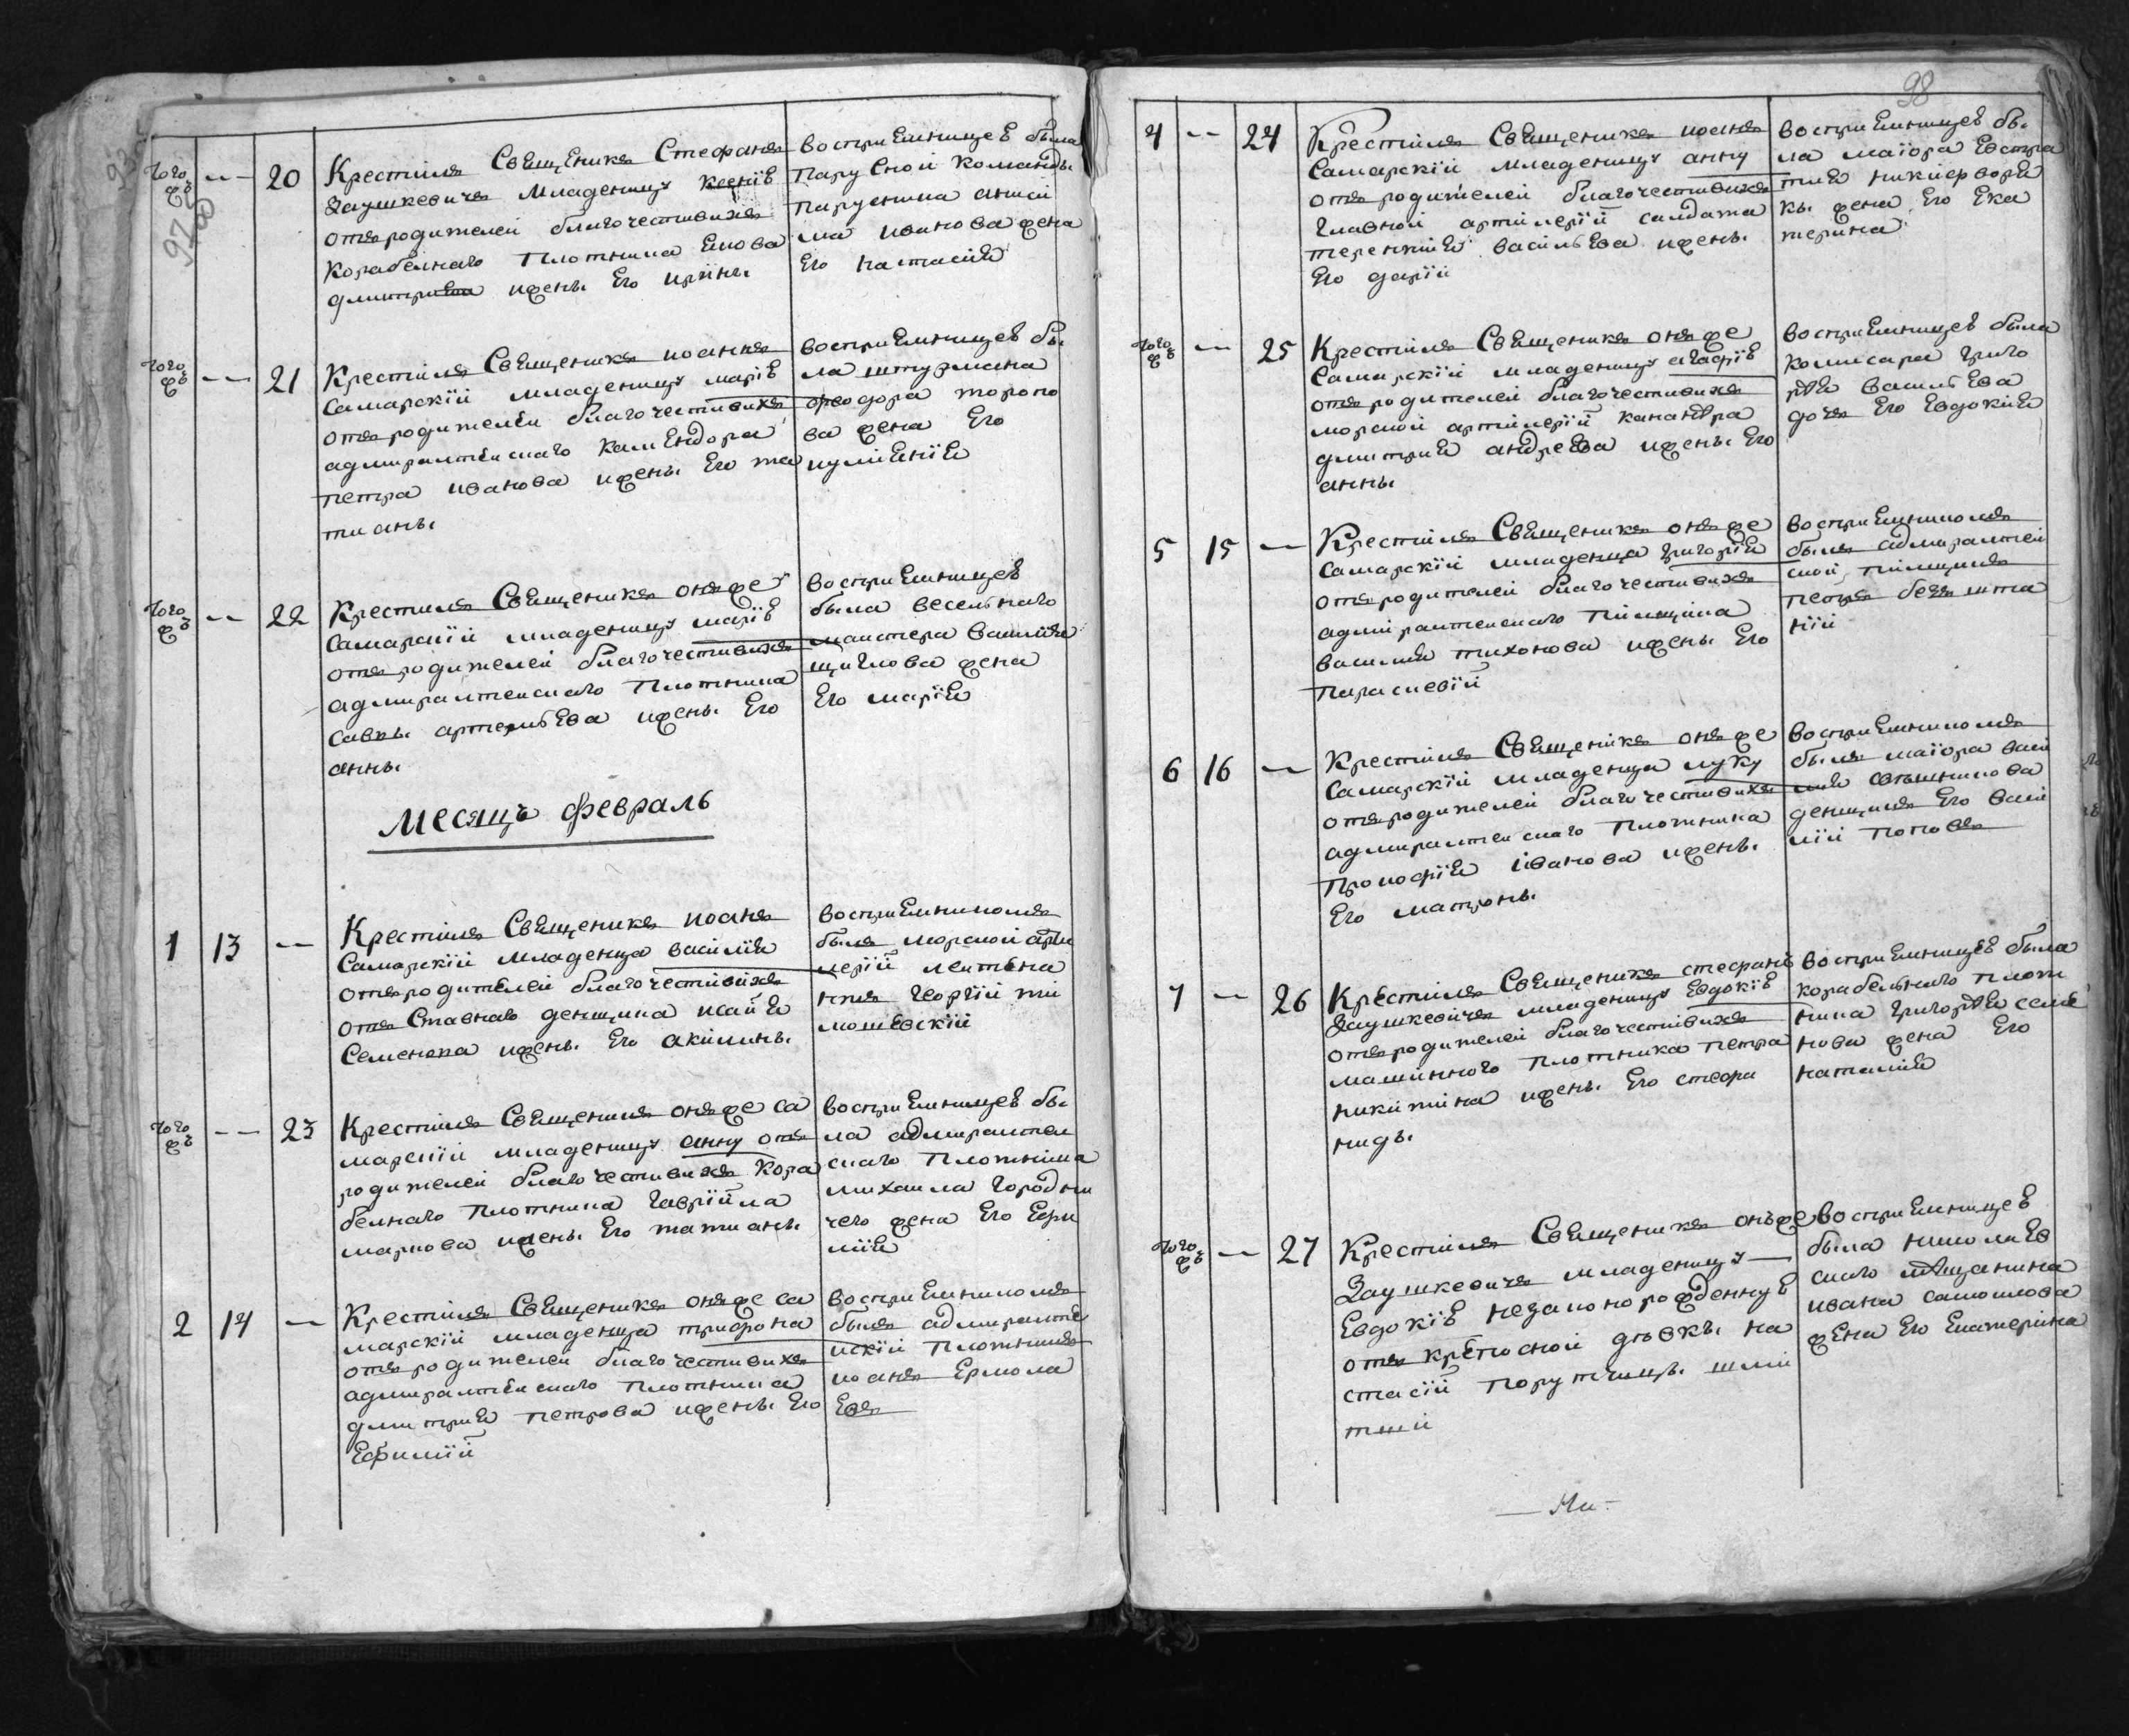 98
того
жъ -- 20
Крестилъ Священикъ Стефанъ
Заушкевичъ младеницу ксенію
отъ родителей благочестивихъ
корабелнаго плотника
дмитрия и жены его ирины
восприемницею была
парусной команды
парусника
иванова жена
его настасия
того
жъ -- 21
Крестилъ Священикъ иоаннъ
Самарскїй младеницу марїю
отъ родителей благочестивихъ
адмиралтейскаго
петра иванова и жены его та
тианы
восприемницею бы
ла штурмана
феодора торопо
ва жена его
иулианїя
того
жъ -- 22
Крестилъ Священикъ онъ же
Самарскїй младеницу марїю
отъ родителей благочестивихъ
адмиралтейскаго плотника
савы артемьева и жены его
анны
восприемницею
была весельнаго
мастера василия
жена
его марїя
Месяцъ Февраль
1 13 --
Крестилъ Священикъ иоанъ
Самарскїй младенца василїя
отъ родителей благочестивихъ
отъ ставнаго денщика исаия
Семенова и жены его акилины
восприемникомъ
былъ морской арти
лерїй лейтена
нтъ георгїй ти
мошевскїй
того
жъ -- 23
Крестилъ Священикъ онъ же са
марскїй младеницу анну отъ
родителей благочестивихъ кора
белнаго плотника гаврїила
маркова и жены его татианы
восприемницею бы
ла адмиралтей
скаго плотника
михаила городни
чего жена его ефи
мїя
2 14 --
Крестилъ Священикъ онъ же са
марскїй младенца трифона
отъ родителей благочестивихъ
адмиралтейскаго плотника
дмитрия петрова и жены его
Ефимїй
восприемникомъ
былъ адмиралте
йскїй плотникъ
иоанъ Ермола
евъ
4 -- 24
Крестилъ Священикъ иоанъ
Самарскїй младеницу анну
отъ родителей благочестивихъ
главной артилерїй салдата
терентия васильева и жены
его дарїй
восприемницею бы
ла маїора евстра
тия никифоров
жена его ека
терина
того
жъ -- 25
Крестилъ Священикъ онъ же
Самарскїй младеницу агафїю
отъ родителей благочестивихъ
морской артилерїй
дмитрия андреева и жены его
анны
восприемницею была
комисара григо
рїя васильева
дочь его евдокия
5 15 --
Крестилъ Священикъ онъ же
Самарскїй младенца григорїя
отъ родителей благочестивихъ
адмиралтейскаго пилщика
василия тихонова и жены его
параскевїй
восприемникомъ
былъ адмиралтей
ской пилщикъ
петръ
6 16 --
Крестилъ Священикъ онъ же
Самарскїй младенца луку
отъ родителей благочестивихъ
адмиралтейскаго плотника
прокофїя иванова и жены
его матроны
восприемникомъ
былъ маїора васи
лия
денщикъ его васи
лїй поповъ
7 -- 26
Крестилъ Священикъ стефанъ
Заушкевичъ младеницу евдокїю
отъ родителей благочестивихъ
машинного плотника петра
никитина и жены его степа
ниды
восприемницею была
корабельнаго плот
ника григорїя семе
нова жена его
наталия
того
жъ -- 27
Крестилъ Священикъ онъ же
Заушкевичъ младеницу
Евдокїю незаконорожденную
отъ крепосной дѣвки на
стасїй порутчицы шми
тшй
восприемницею
была николаев
скаго мѣщанина
ивана самойлова
жена его екатерина